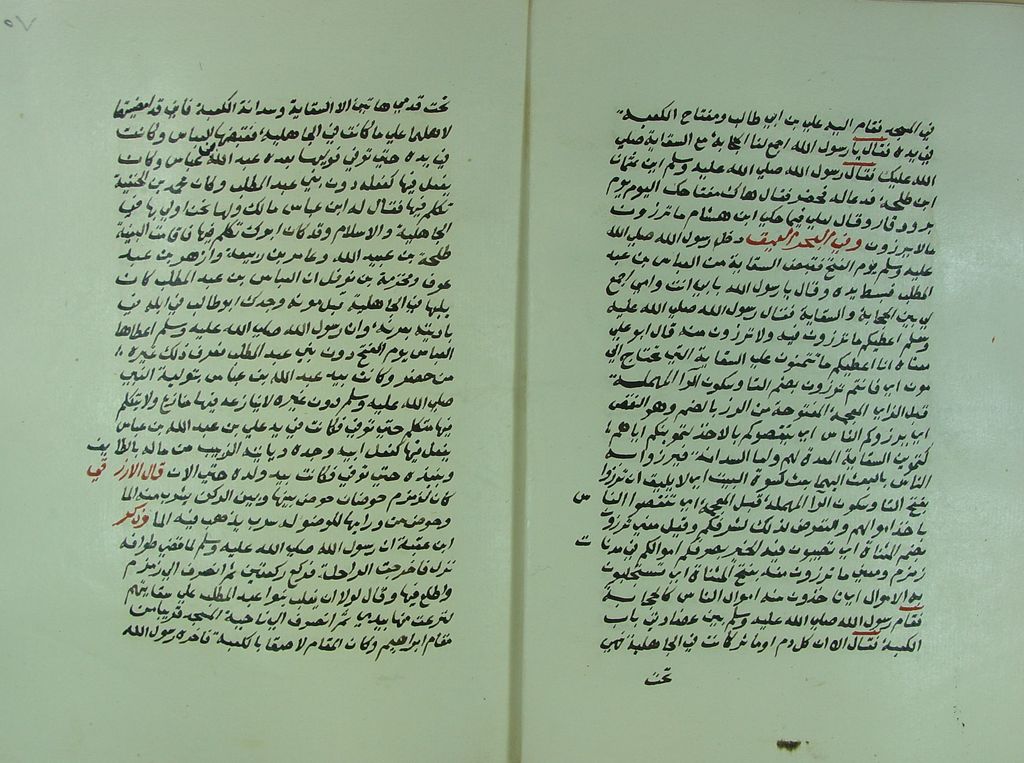 في المسجد فقام اليه علي بن ابي طالب ومفتاح الكعبة
في يده فقال يا رسول الله اجمع لنا الحجابة مع السقاية صلي
الله عليك فقال رسول الله صلي الله عليه وسلم اين عثمان
ابن طلحة فدعا له فحضر فقال هاك مفتاحك اليوم يوم
بر ووفا وقال علي فيما حكي ابن هشام ما ترزون
مالا يرزون وفي البحر العميق دخل رسول الله صلي الله
عليه وسلم يوم الفتح فقبض السقاية من العباس بن عبد
المطلب فبسط يده وقال يا رسول الله بابي انت وامي اجمع
لي بين الحجابة والسقاية فقال رسول الله صلي الله عليه
وسلم اعطيكم ما ترزون فيه ولا ترزون منه قال ابو علي
معناه انا اعطيكم ما تتمنون علي السقاية التي تحتاج الي
مون اي فانتم ترزون بضم التا وسكون الرا المهملة
قبل الزاي المعجمة المفتوحة من الرز بالضم وهو النقص
اي يرزوكم الناس اي ينقصوكم بالاخذ لتموينكم اياهم
كتموين السقاية المعدة لهم واما السدانة فيرزا له
الناس بالبعث اليها بعث كسوة البيت اي لا يليق ان ترزوا
بفتح التا وسكون الرا المهملة قبل المعجمة اي تنتقصوا الناس
باخذ اموالهم والتعرض لذلك لشرفكم وقيل معني ترزون
بضم المثناة اي تصيبون فيه الخير بصرفكم اموالكم في مونات
زمزم ومعني ما ترزون منه بفتح المثناة اي تستجلبون
به الاموال اي تاخذون منه اموال الناس كالحجابة
فقام رسول الله صلي الله عليه وسلم بين عضادتي باب
الكعبة فقال الا ان كل دم او ماثرة كانت في الجاهلية فهي
تحت
تحت قدمي هاتين الا السقاية وسدانة الكعبة فاني قد امضيتها
لاهلها علي ما كانت في الجاهلية فقبضها العباس وكانت
في يده حتي توفي فوليها بعده عبد الله بن عباس وكان
يفعل فيها كفعله دون بني عبد المطلب وكان محمد بن الحنفية
تكلم فيها فقال له ابن عباس مالك ولها نحن اولي بها في
الجاهلية والاسلام وقد كان ابوك تكلم فيها فاقامت البينة
طلحة بن عبيد الله وعامر بن ربيعة وازهر بن عبد
عوف ومخرمة بن نوفل ان العباس بن عبد المطلب كان
يليها في الجاهلية قبل موته وجدك ابو طالب في ابله في
باديته بعرنة وان رسول الله صلي الله عليه وسلم اعطاها
العباس يوم الفتح دون بني عبد المطلب فعرف ذلك غيره
من حضر وكانت بيد عبد الله بن عباس بتولية النبي
صلي الله عليه وسلم دون غيره لا ينازعه فيها منازع ولا يتكلم
فيها متكلم حتي توفي فكانت في يد علي بن عبد الله بن عباس
يفعل فيها كفعل ابيه وجده وياتيه الزبيب من ماله بالطايف
وينبذه حتي توفي فكانت بيد ولده حتي الان قال الازرقي
كان لزمزم حوضان حوض بينها وبين الركن يشرب منه الما
وحوض من ورايها للوضو له سرب يذهب فيه الما وذكر
ابن عقبة ان رسول الله صلي الله عليه وسلم لما قضي طوافه
نزل فاخرجت الراحلة فركع ركعتين ثم انصرف الي زمزم
واطلع فيها وقال لولا ان يغلب بنوا عبد المطلب علي سقايتهم
لنزعت منها بيدي ثم انصرف الي ناحية المسجد قريبا من
مقام ابراهيم وكان المقام لاصقا بالكعبة فاخره رسول الله